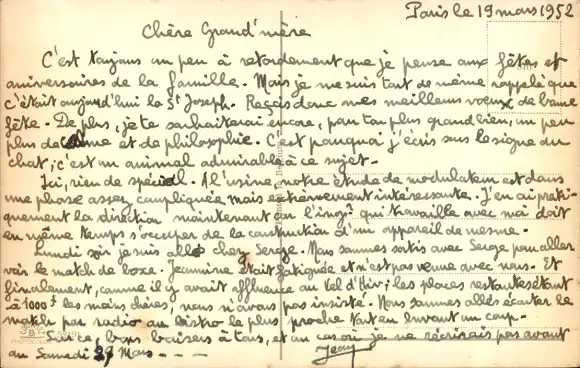 Paris le 19 mars 1952
Chère Grand'mère
C'est toujours un peu à retordement que je pense aux fêtes et
anniversaires de la famille. Mais je me suis tout de même rappelé que
c'était aujourd'hui la St Joseph. Reçois donc mes meilleurs voeux de bonne
fête. De plus, je te souhaiterai encore, pour ton plus grand bien, un peu
plus de calme et de philosophie. C'est pourquoi j'écris sous le signe du
chat; c'est un animal admirable à ce sujet.
Ici, rien de spécial. A l'usine, notre étude de modulateur est dans
une phase assez compliquée mais extrêmement intéressante. J'en ai prati-
quement la direction maintenant car l'ingé qui travaille avec moi doit
en même temps s'occuper de la construction d'un appareil de mesure.
Lundi soir je suis allé chez Serge. Nous sommes sortis avec Serge pour aller
voir le match de boxe. Jeannine était fatiguée et n'est pas venue avec nous. Et
finalement, comme il y avait affluence au Vel d'Hiv; les places restantes étant
à 1000f les moins chères, nous n'avons pas insisté. Nous sommes allés écouter le
match par radio au bistro le plus proche tout en buvant un coup.
Sur ce, bons baisers à tous, et au cas où je ne récrirais pas avant
au Samedi 29 Mars - - -
Jean